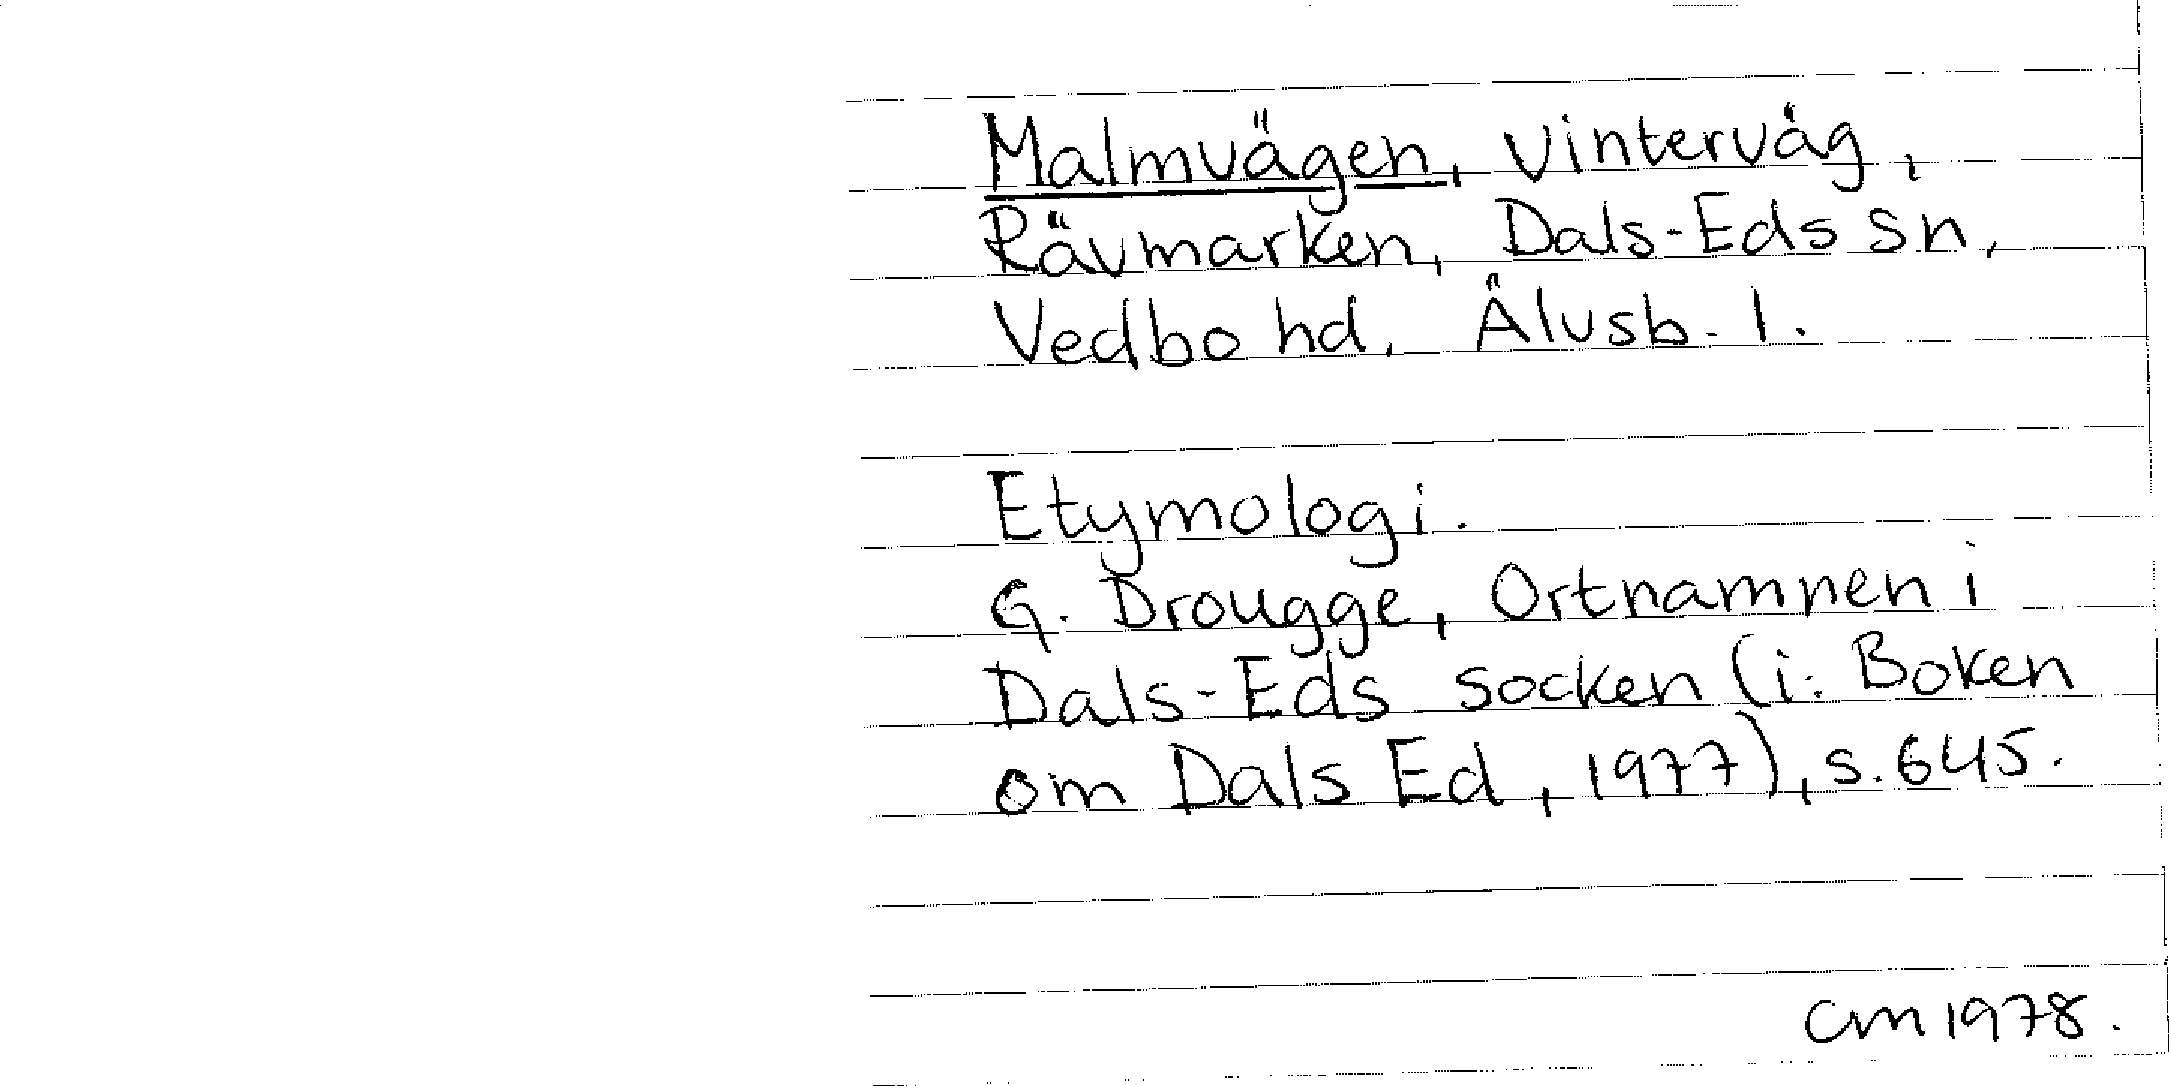 Malmvägen, vinterväg,
Rävmarken, Dals-Eds sn,
Vedbo hd, Älvsb. l.
Etymologi.
G. Drougge, Ortnamnen i
Dals-Eds socken (i: Boken
om Dals Ed, 1977), s. 645.
CM 1978.